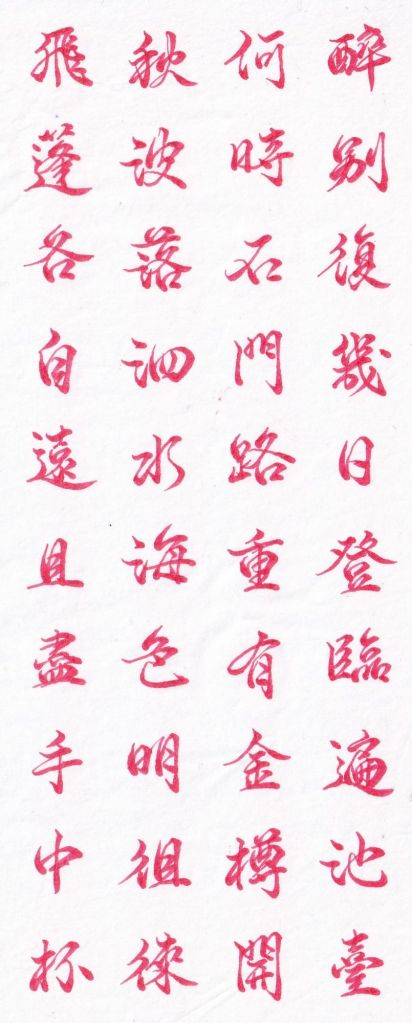 醉別復幾日登臨遍池臺
何時石門路重有金樽開
秋波落泗水海色明徂徠
飛蓬各自遠且盡手中杯